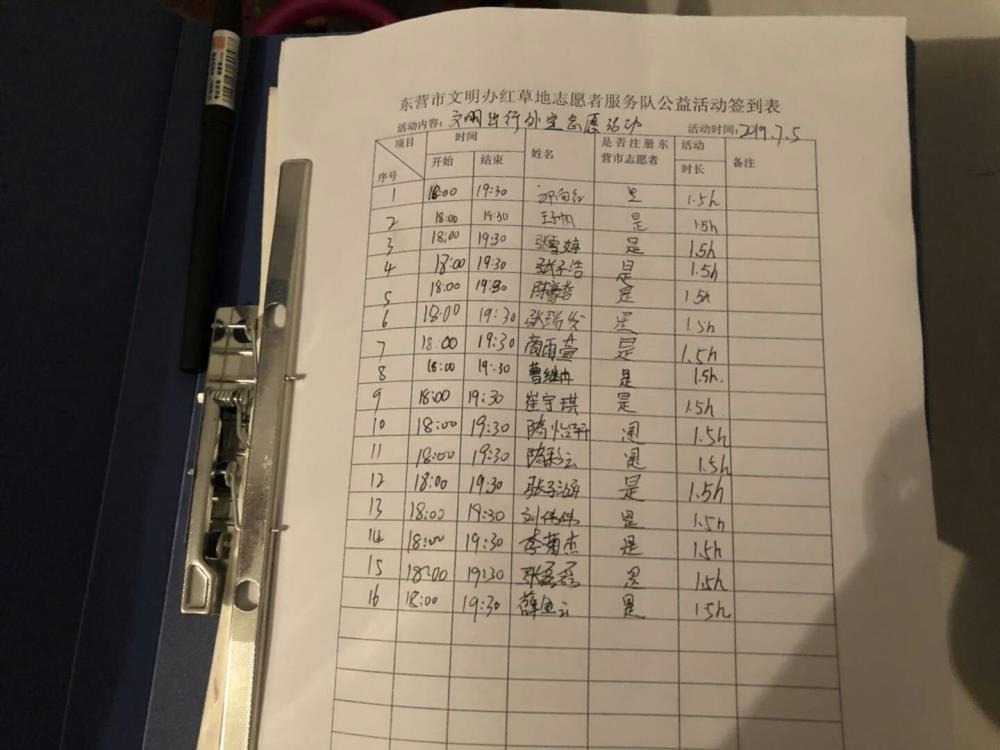 东营市文明办红草地志愿者服务队公益活动签到表
活动内容：文明出行 志愿活动 活动时间：2019.7.5
项目 时间 姓名 是否注册东营市志愿者 活动 备注
序号 开始 结束 时长
1 18:00 19:30 是 1.5h
2 18:00 19:30 王 是 1.5h
3 18:00 19:30 张雪婷 是 1.5h
4 18:00 19:30 张子浩 是 1.5h
5 18:00 19:30 陈豪 是 1.5h
6 18:00 19:30 张瑞 是 1.5h
7 18:00 19:30 商雨萱 是 1.5h
8 18:00 19:30 曹继冉 是 1.5h.
9 18:00 19:30 崔宇琪 是 1.5h
10 18:00 19:30 隋怡轩 是 1.5h
11 18:00 19:30 隋彩云 是 1.5h
12 18:00 19:30 张子涵 是 1.5h
13 18:00 19:30 刘伟伟 是 1.5h
14 18:00 19:30 李菊杰 是 1.5h
15 18:00 19:30 张磊磊 是 1.5h
16 18:00 19:30 薛 云 是 1.5h